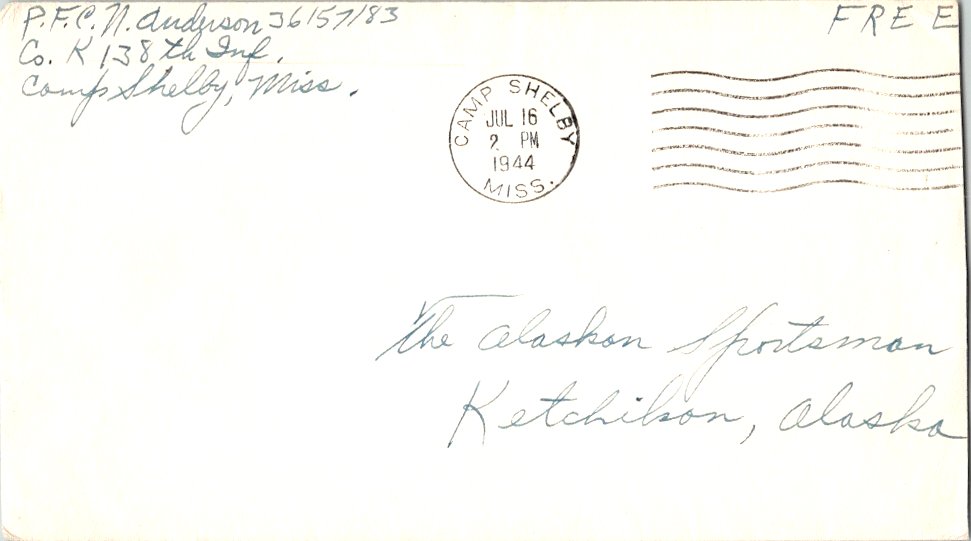 P.F.C. N. Anderson 36157183
Co. K 138th Inf.
Camp Shelby, Miss.
FREE
CAMP SHELBY
JUL 16
2 PM
1944
MISS.
The Alaskan Sportsman
Ketchikan, Alaska